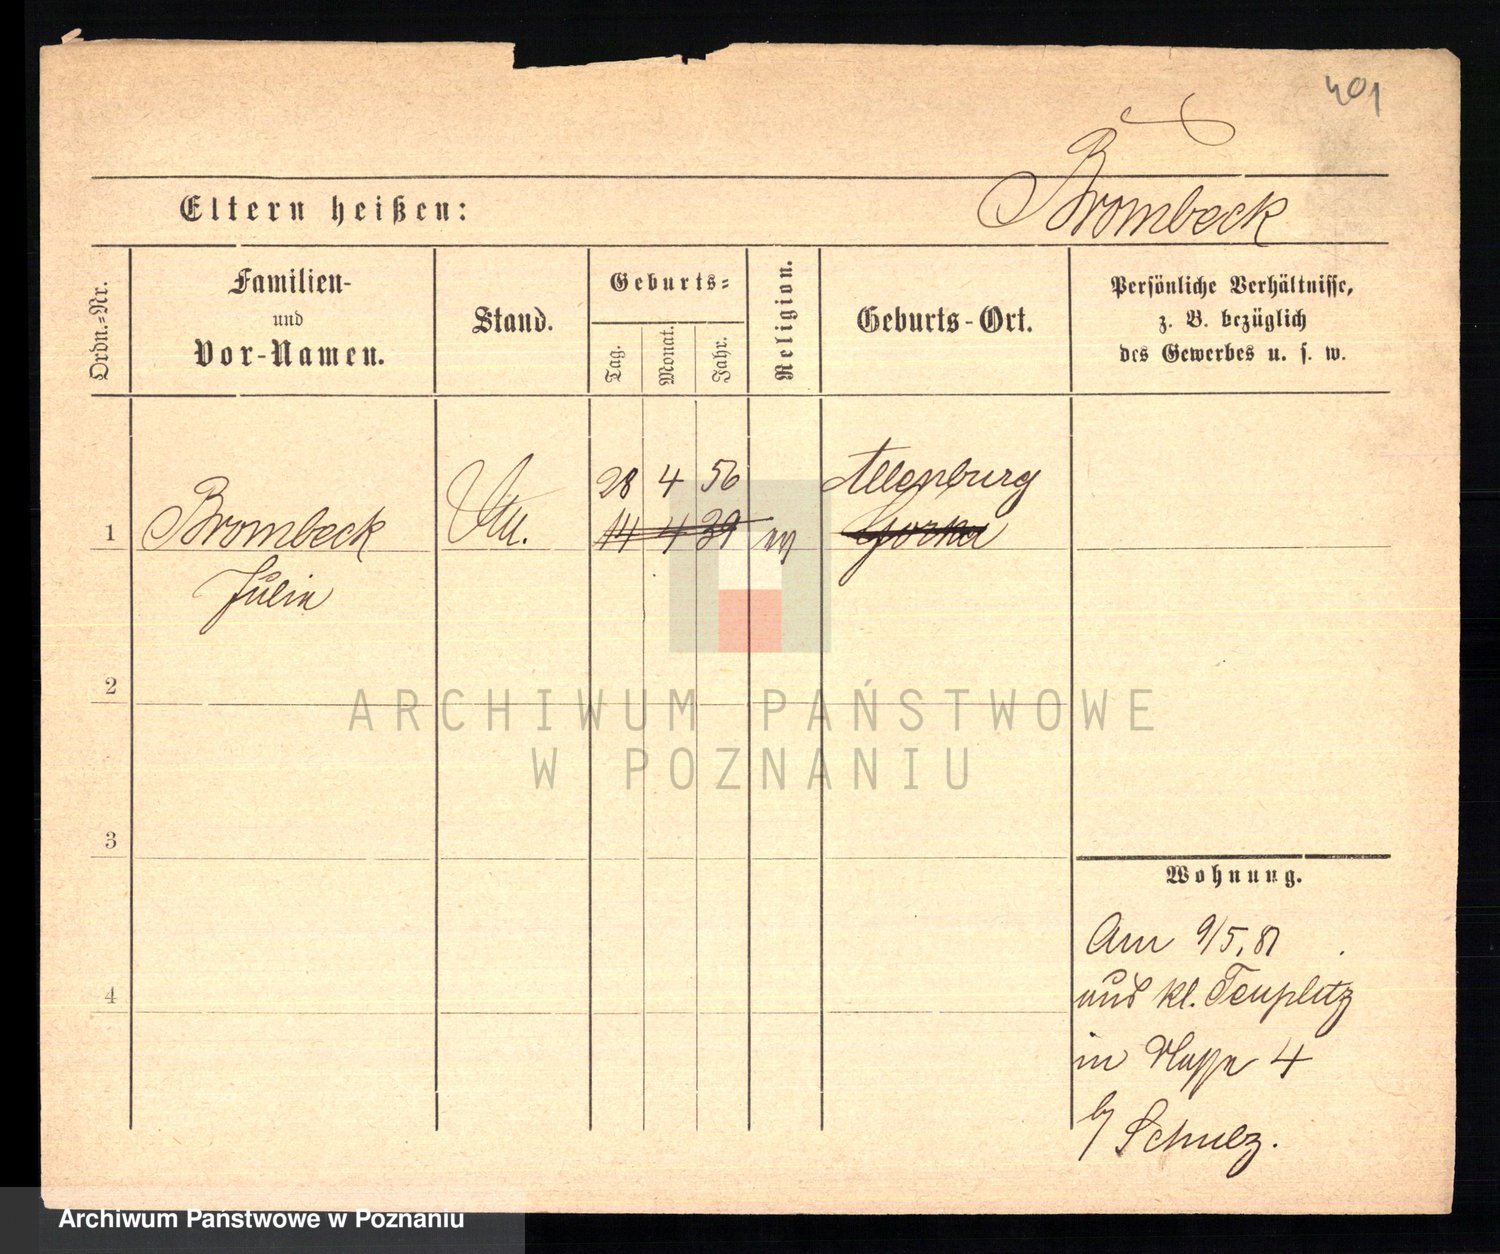 401
Brombeck
Eltern heißen:
Ordn.=Nr.
Familien-
und
Vor-Namen.
Stand.
Geburts=
Tag.
Monat.
Jahr.
Religion.
Geburts-Ort.
Persönliche Verhältnisse,
z. B. bezüglich
des Gewerbes u. s. w.
28 4 56 Allenburg
1 Brombeck 14 4 39 Gorka
Julie
2
ARCHIWUM PAŃSTWOWE
W POZNANIU
3
Wohnung.
Am 9/5, 81
4
aus kl. Teuplitz
in 4
b/ Schulz.
Archiwum Państwowe w Poznaniu